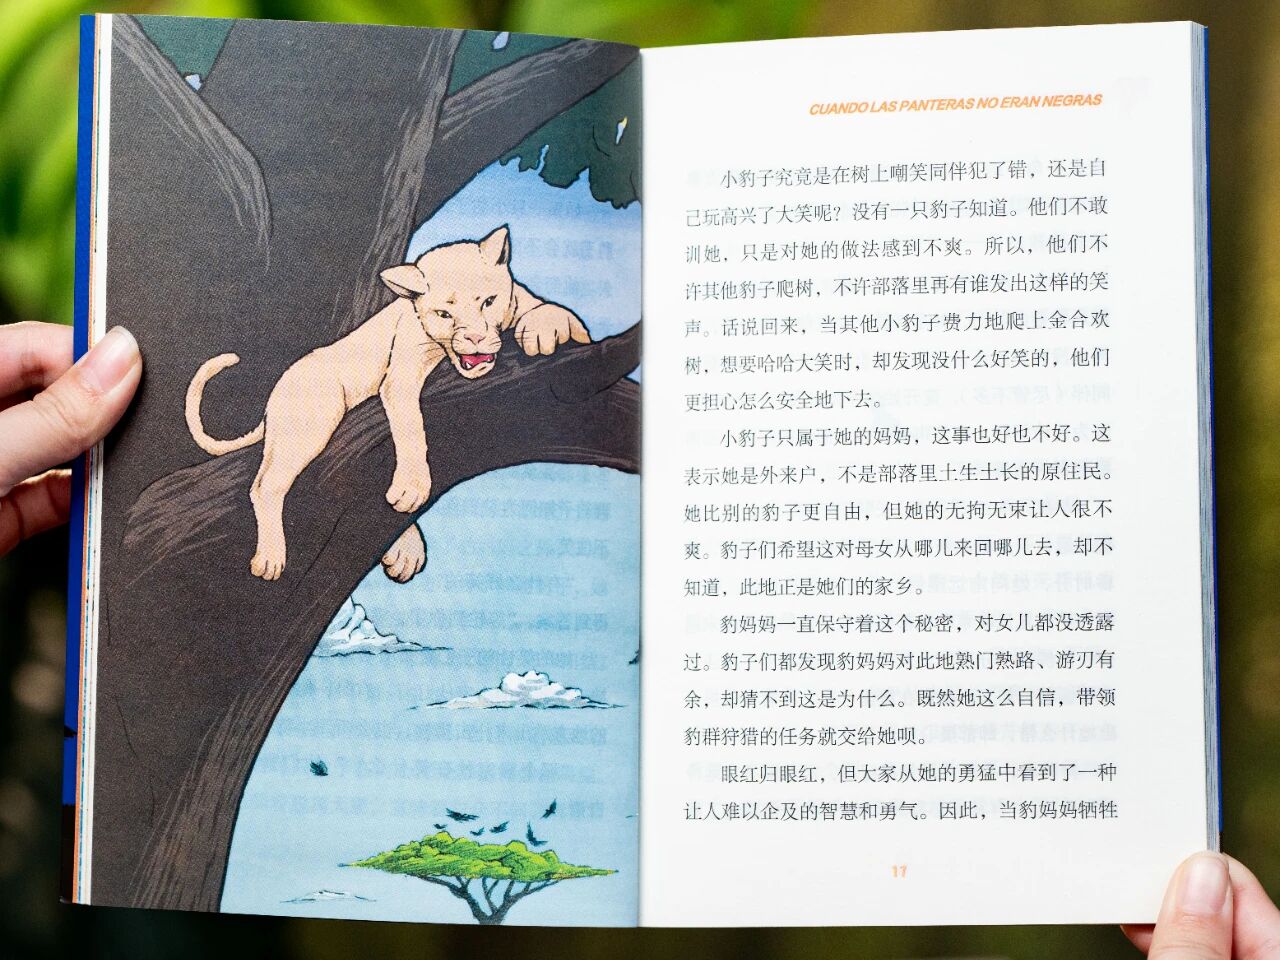 CUANDO LAS PANTERAS NO ERAN NEGRAS
小豹子究竟是在树上嘲笑同伴犯了错，还是自
己玩高兴了大笑呢？没有一只豹子知道。他们不敢
训她，只是对她的做法感到不爽。所以，他们不
许其他豹子爬树，不许部落里再有谁发出这样的笑
声。话说回来，当其他小豹子费力地爬上金合欢
树，想要哈哈大笑时，却发现没什么好笑的，他们
更担心怎么安全地下去。
小豹子只属于她的妈妈，这事也好也不好。这
表示她是外来户，不是部落里土生土长的原住民。
她比别的豹子更自由，但她的无拘无束让人很不
爽。豹子们希望这对母女从哪儿来回哪儿去，却不
知道，此地正是她们的家乡。
豹妈妈一直保守着这个秘密，对女儿都没透露
过。豹子们都发现豹妈妈对此地熟门熟路、游刃有
余，却猜不到这是为什么。既然她这么自信，带领
豹群狩猎的任务就交给她呗。
眼红归眼红，但大家从她的勇猛中看到了一种
让人难以企及的智慧和勇气。因此，当豹妈妈牺牲
11